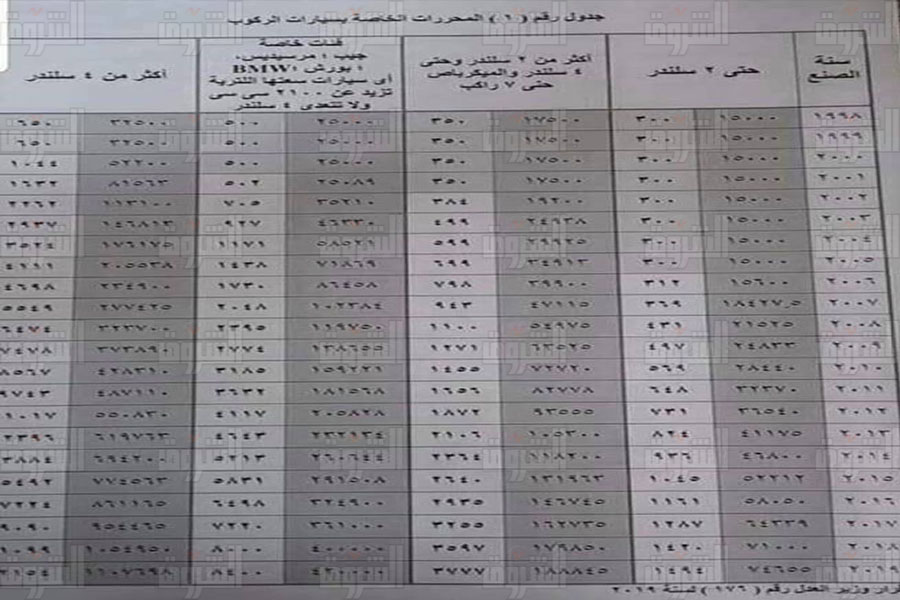 جدول رقم ( ١ ) المحررات الخاصة بسيارات الركوب
سنة الصنع
حتى ٢ سلندر
أكثر من ٢ سلندر وحتى
٤ سلندر والميكرباص
حتى ٧ راكب
فئات خاصة
جيب ، مرسيديس،
، بورش ،BMW
أى سيارات سعتها اللترية
تزيد عن ٢١٠٠ سى سى
ولا تتعدى ٤ سلندر
أكثر من ٤ سلندر
١٩٩٨ ١٥٠٠٠ ٣٠٠ ١٧٥٠٠ ٣٥٠ ٢٥٠٠٠ ٥٠٠ ٣٢٥٠٠ ٦٥٠
١٩٩٩ ١٥٠٠٠ ٣٠٠ ١٧٥٠٠ ٣٥٠ ٢٥٠٠٠ ٥٠٠ ٣٢٥٠٠ ٦٥٠
٢٠٠٠ ١٥٠٠٠ ٣٠٠ ١٧٥٠٠ ٣٥٠ ٢٥٠٠٠ ٥٠٠ ٥٢٢٠٠ ١٠٤٤
٢٠٠١ ١٥٠٠٠ ٣٠٠ ١٧٥٠٠ ٣٥٠ ٢٥٠٨٩ ٥٠٢ ٨١٥٦٣ ١٦٣٢
٢٠٠٢ ١٥٠٠٠ ٣٠٠ ١٩٢٠٠ ٣٨٤ ٣٥٢١٠ ٧٠٥ ١١٣١٠٠ ٢٢٦٢
٢٠٠٣ ١٥٠٠٠ ٣٠٠ ٢٤٩٣٨ ٤٩٩ ٤٦٣٣٠ ٩٢٧ ١٤٦٨١٣ ٢٩٣٧
٢٠٠٤ ١٥٠٠٠ ٣٠٠ ٢٩٩٢٥ ٥٩٩ ٥٨٥٢١ ١١٧١ ١٧٦١٧٥ ٣٥٢٤
٢٠٠٥ ١٥٠٠٠ ٣٠٠ ٣٤٩١٣ ٦٩٩ ٧١٨٦٩ ١٤٣٨ ٢٠٥٥٣٨ ٤١١١
٢٠٠٦ ١٥٦٠٠ ٣١٢ ٣٩٩٠٠ ٧٩٨ ٨٦٤٥٨ ١٧٣٠ ٢٣٤٩٠٠ ٤٦٩٨
٢٠٠٧ ١٨٤٢٧,٥ ٣٦٩ ٤٧١١٥ ٩٤٣ ١٠٢٣٨٤ ٢٠٤٨ ٢٧٧٤٢٥ ٥٥٤٩
٢٠٠٨ ٢١٥٢٥ ٤٣١ ٥٤٩٧٥ ١١٠٠ ١١٩٧٥٠ ٢٣٩٥ ٣٢٣٧٠٠ ٦٤٧٤
٢٠٠٩ ٢٤٨٣٣ ٤٩٧ ٦٣٥٢٥ ١٢٧١ ١٣٨٦٥٥ ٢٧٧٤ ٣٧٣٨٩٠ ٧٤٧٨
٢٠١٠ ٢٨٤٤٠ ٥٦٩ ٧٢٧٢٠ ١٤٥٥ ١٥٩٢٢١ ٣١٨٥ ٤٢٨٣١٠ ٨٥٦٧
٢٠١١ ٣٢٣٧٠ ٦٤٨ ٨٢٧٧٨ ١٦٥٦ ١٨١٥٦٨ ٣٦٣٢ ٤٨٧١١٠ ٩٧٤٣
٢٠١٢ ٣٦٥٤٠ ٧٣١ ٩٣٥٥٥ ١٨٧٢ ٢٠٥٨٢٨ ٤١١٧ ٥٥٠٨٣٠ ١٠١٧
٢٠١٣ ٤١١٧٥ ٨٢٤ ١٠٥٣٠٠ ٢١٠٦ ٢٣٢١٣٤ ٤٦٤٣ ٦١٩٧٦٣ ٢٣٩٦
٢٠١٤ ٤٦٨٠٠ ٩٣٦ ١١٨٢٠٠ ٢٣٦٤ ٢٦٠٦٤٤ ٥٢١٣ ٦٩٤٢٠٠ ٣٨٨٤
٢٠١٥ ٥٢٢١٢ ١٠٤٥ ١٣١٩٦٣ ٢٦٤٠ ٢٩١٥٠٨ ٥٨٣١ ٧٧٤٥٦٣ ٥٤٩٢
٢٠١٦ ٥٨٠٥٠ ١١٦١ ١٤٦٧٤٥ ٢٩٣٥ ٣٢٤٩٠٠ ٦٤٩٨ ٨٦١١٦٥ ٧٢٢٤
٢٠١٧ ٦٤٣٣٩ ١٢٨٧ ١٦٢٧٣٥ ٣٢٥٥ ٣٦١٠٠٠ ٧٢٢٠ ٩٥٤٤٦٥ ٩٠٩٠
٢٠١٨ ٧١٠٠٠ ١٤٢٠ ١٧٩٨٥٠ ٣٥٩٧ ٤٠٠٠٠٠ ٨٠٠٠ ١٠٥٤٩٥٠ ١٠٩٩
٢٠١٩ ٧٤٦٥٥ ١٤٩٤ ١٨٨٨٤٥ ٣٧٧٧ ٤٢٠٠٠١ ٨٤٠٠ ١١٠٧٦٩٨ ٢١٥٤
رار وزير العدل رقم ( ١٧٦ ) لسنة ٢٠١٩
الشروق